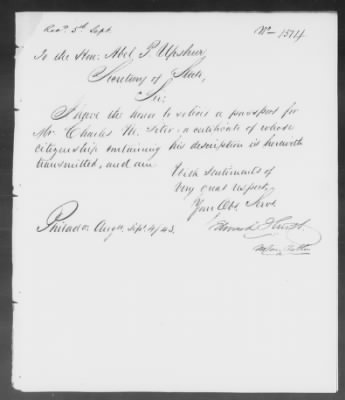 Recd. 5th Sept.
No 1514
To the Hon: Abel P. Upshur,
Secretary of State,
Sir:
I have the honor to solicit a passport for
Mr. Charles M. a certificate of whose
citizenship containing his description is herewith
transmitted, and am
With sentiments of
Very great respect,
Your Obt. Servt
Edward Hurst
Philada. Sept. 4/43.